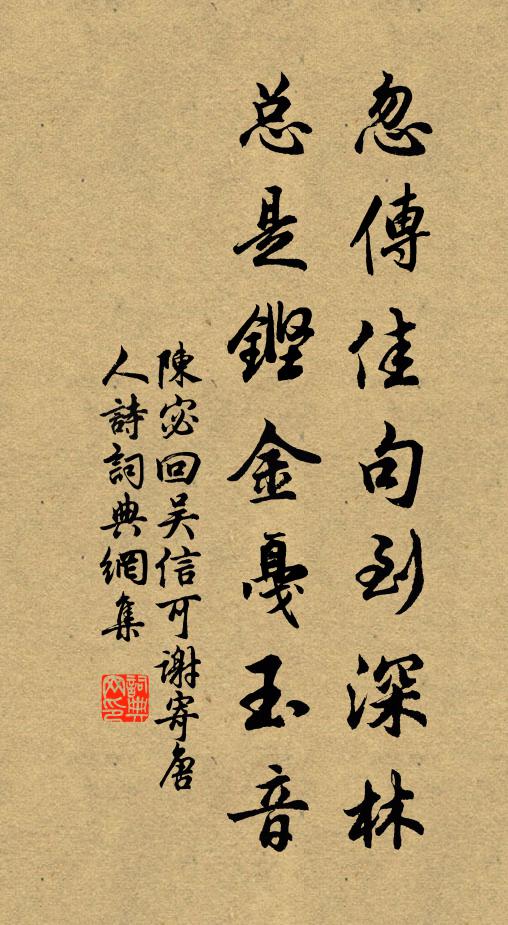 忽傳佳句到深林
总是鏗金戛玉音
陳宓回吴信可謝寄唐
人詩詞典網集
詞典网印